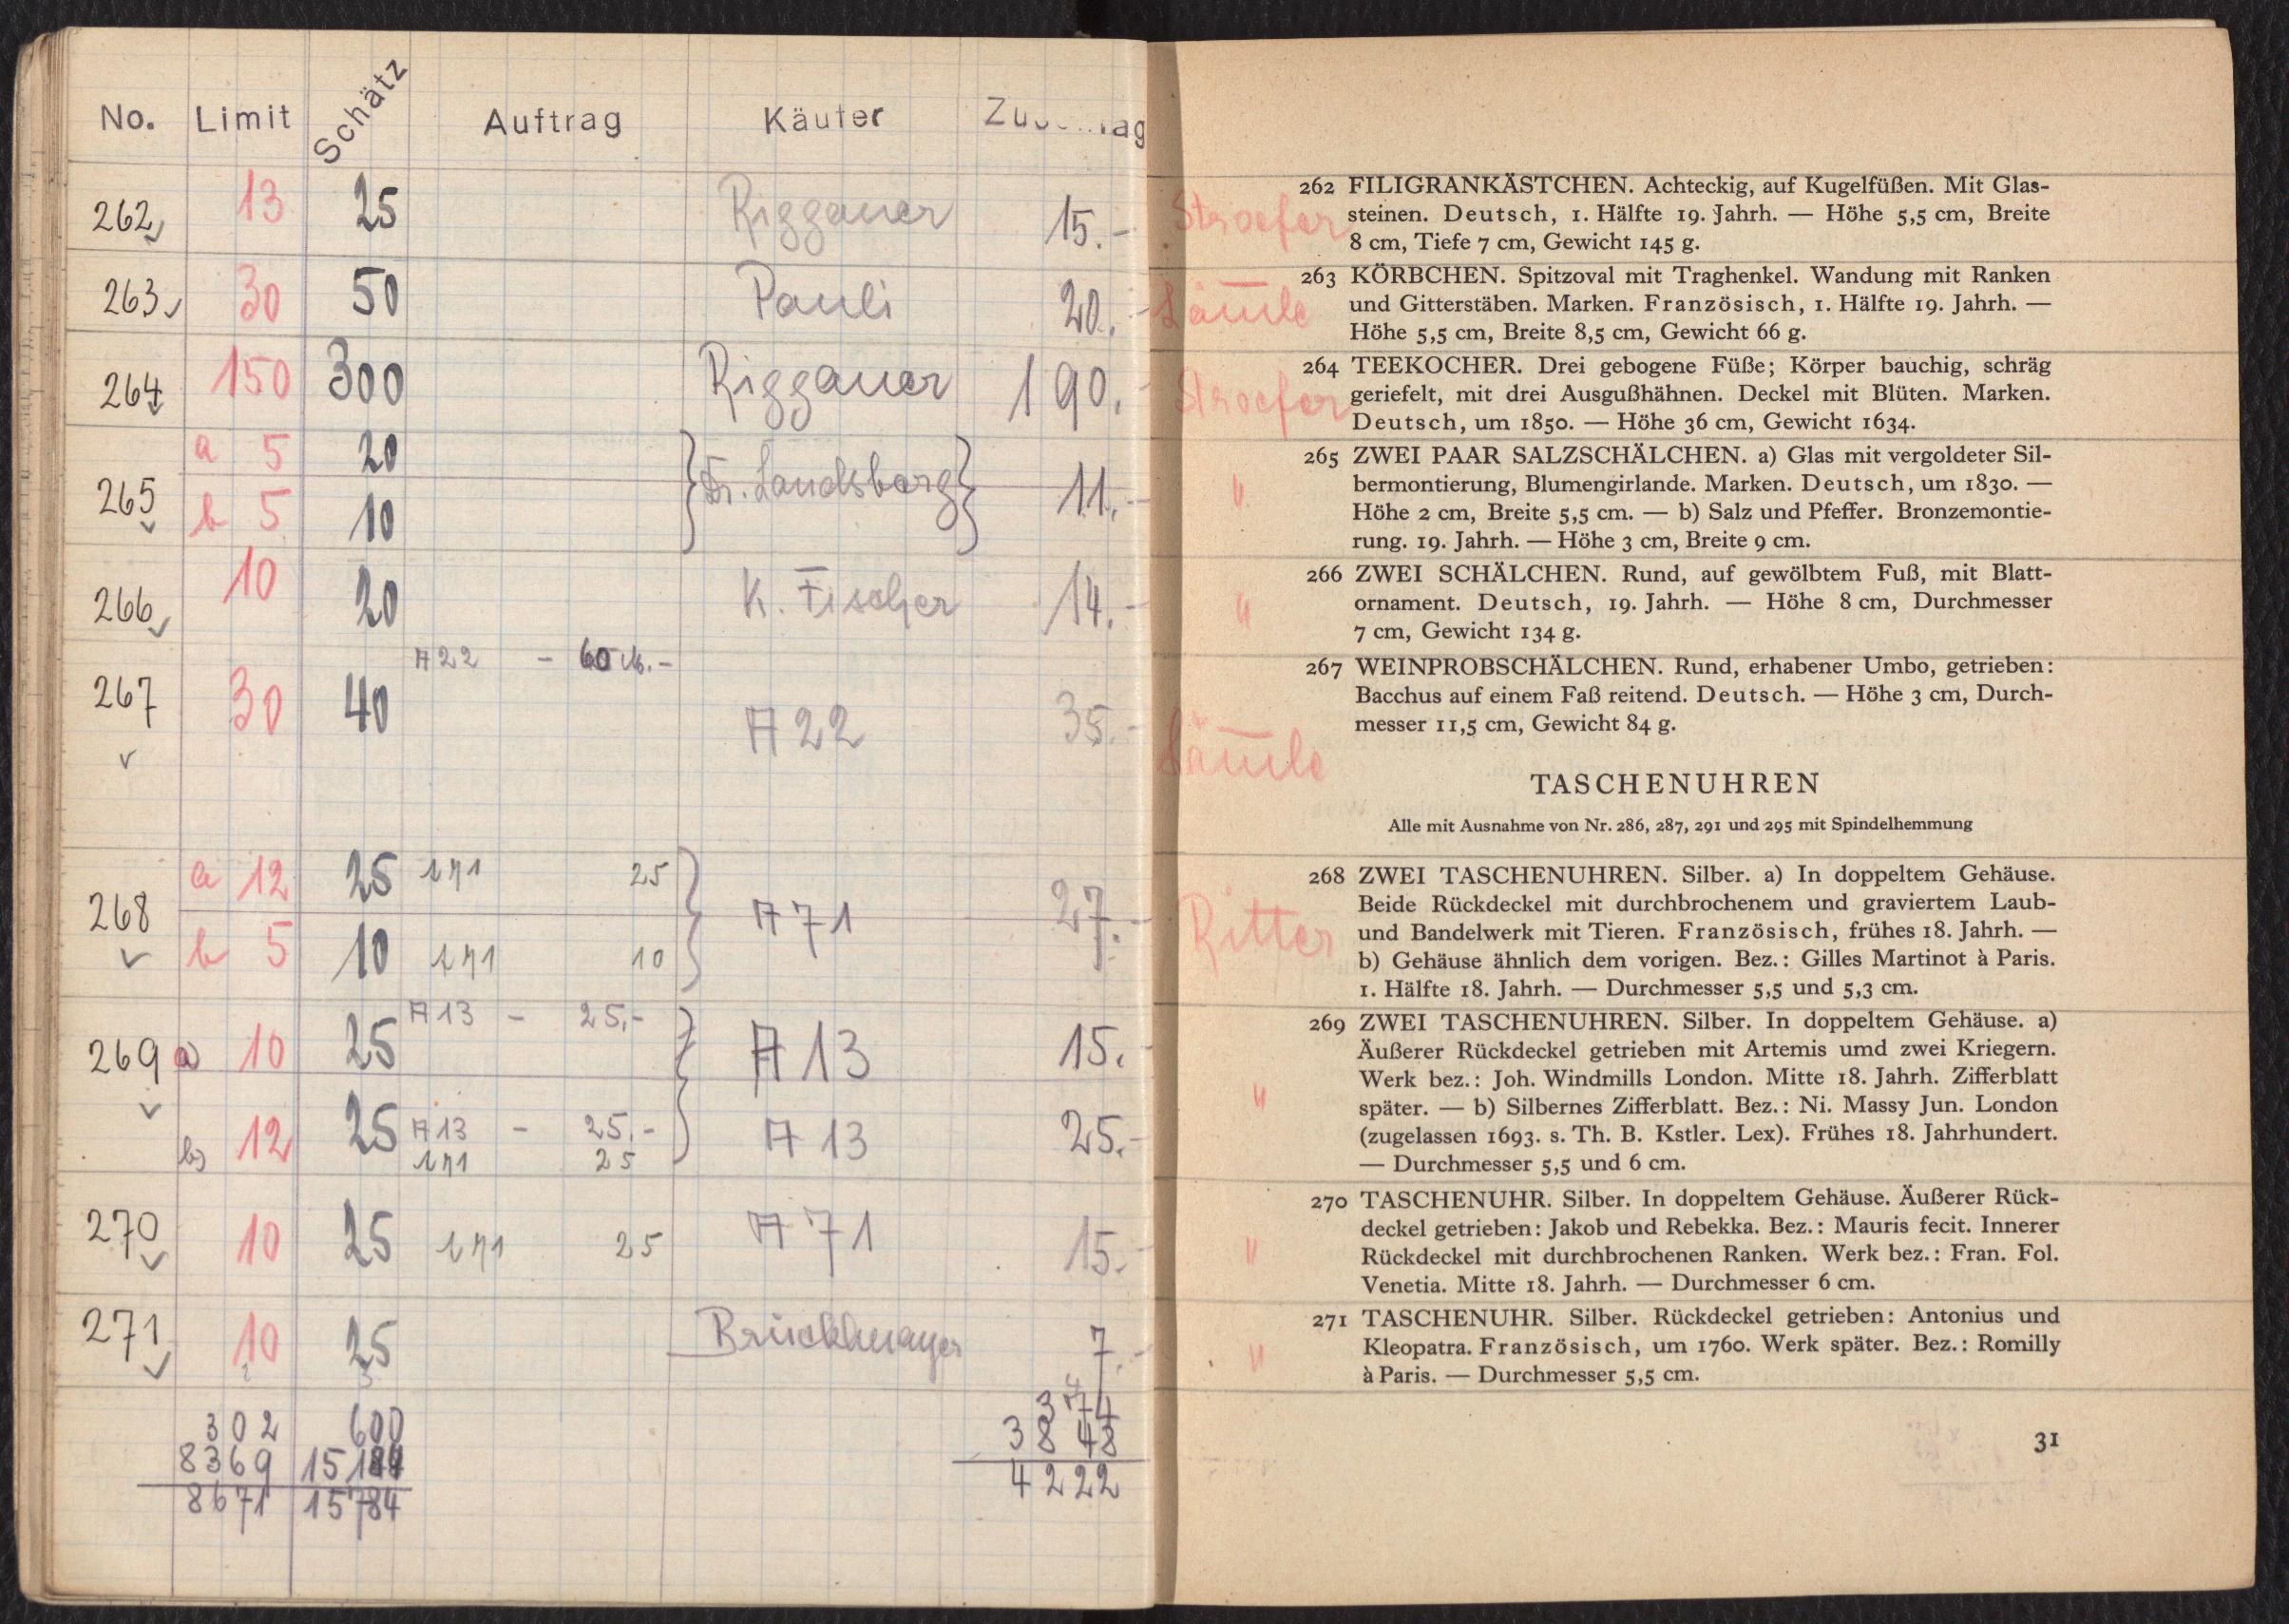 No. Limit Schätz Auftrag Käufer
262 13 25 Riggauer 15.-
263 30 50 Pauli 20.-
264 150 300 Riggauer 190.-
265 a 5 20 Dr. Landsberg 11.-
b 5 10
266 10 20 K. Fischer 14.-
A 22 - 60 M.-
267 30 40 A 22 35.-
268 a 12 25 25 A 71 27.-
b 5 10 10
A 13 - 25.-
269 a) 10 25 A 13 15.
b) 12 25 A 13 - 25.- A 13 25.-
25
270 10 25 25 A 71 15.-
271 10 25 Brücklmayer 7.-
302 600 374
8369 15184 3848
8671 15784 4222
Stroefer
262 FILIGRANKÄSTCHEN. Achteckig, auf Kugelfüßen. Mit Glas-
steinen. Deutsch, 1. Hälfte 19. Jahrh. — Höhe 5,5 cm, Breite
8 cm, Tiefe 7 cm, Gewicht 145 g.
Lämle
263 KÖRBCHEN. Spitzoval mit Traghenkel. Wandung mit Ranken
und Gitterstäben. Marken. Französisch, 1. Hälfte 19. Jahrh. —
Höhe 5,5 cm, Breite 8,5 cm, Gewicht 66 g.
Stroefer
264 TEEKOCHER. Drei gebogene Füße; Körper bauchig, schräg
geriefelt, mit drei Ausgußhähnen. Deckel mit Blüten. Marken.
Deutsch, um 1850. — Höhe 36 cm, Gewicht 1634.
"
265 ZWEI PAAR SALZSCHÄLCHEN. a) Glas mit vergoldeter Sil-
bermontierung, Blumengirlande. Marken. Deutsch, um 1830. —
Höhe 2 cm, Breite 5,5 cm. — b) Salz und Pfeffer. Bronzemontie-
rung. 19. Jahrh. — Höhe 3 cm, Breite 9 cm.
"
266 ZWEI SCHÄLCHEN. Rund, auf gewölbtem Fuß, mit Blatt-
ornament. Deutsch, 19. Jahrh. — Höhe 8 cm, Durchmesser
7 cm, Gewicht 134 g.
267 WEINPROBSCHÄLCHEN. Rund, erhabener Umbo, getrieben:
Bacchus auf einem Faß reitend. Deutsch. — Höhe 3 cm, Durch-
messer 11,5 cm, Gewicht 84 g.
Lämle
TASCHENUHREN
Alle mit Ausnahme von Nr. 286, 287, 291 und 295 mit Spindelhemmung
268 ZWEI TASCHENUHREN. Silber. a) In doppeltem Gehäuse.
Beide Rückdeckel mit durchbrochenem und graviertem Laub-
Ritter
und Bandelwerk mit Tieren. Französisch, frühes 18. Jahrh. —
b) Gehäuse ähnlich dem vorigen. Bez.: Gilles Martinot à Paris.
1. Hälfte 18. Jahrh. — Durchmesser 5,5 und 5,3 cm.
269 ZWEI TASCHENUHREN. Silber. In doppeltem Gehäuse. a)
Äußerer Rückdeckel getrieben mit Artemis umd zwei Kriegern.
Werk bez.: Joh. Windmills London. Mitte 18. Jahrh. Zifferblatt
"
später. — b) Silbernes Zifferblatt. Bez.: Ni. Massy Jun. London
(zugelassen 1693. s. Th. B. Kstler. Lex). Frühes 18. Jahrhundert.
— Durchmesser 5,5 und 6 cm.
270 TASCHENUHR. Silber. In doppeltem Gehäuse. Äußerer Rück-
deckel getrieben: Jakob und Rebekka. Bez.: Mauris fecit. Innerer
"
Rückdeckel mit durchbrochenen Ranken. Werk bez.: Fran. Fol.
Venetia. Mitte 18. Jahrh. — Durchmesser 6 cm.
271 TASCHENUHR. Silber. Rückdeckel getrieben: Antonius und
"
Kleopatra. Französisch, um 1760. Werk später. Bez.: Romilly
à Paris. — Durchmesser 5,5 cm.
31